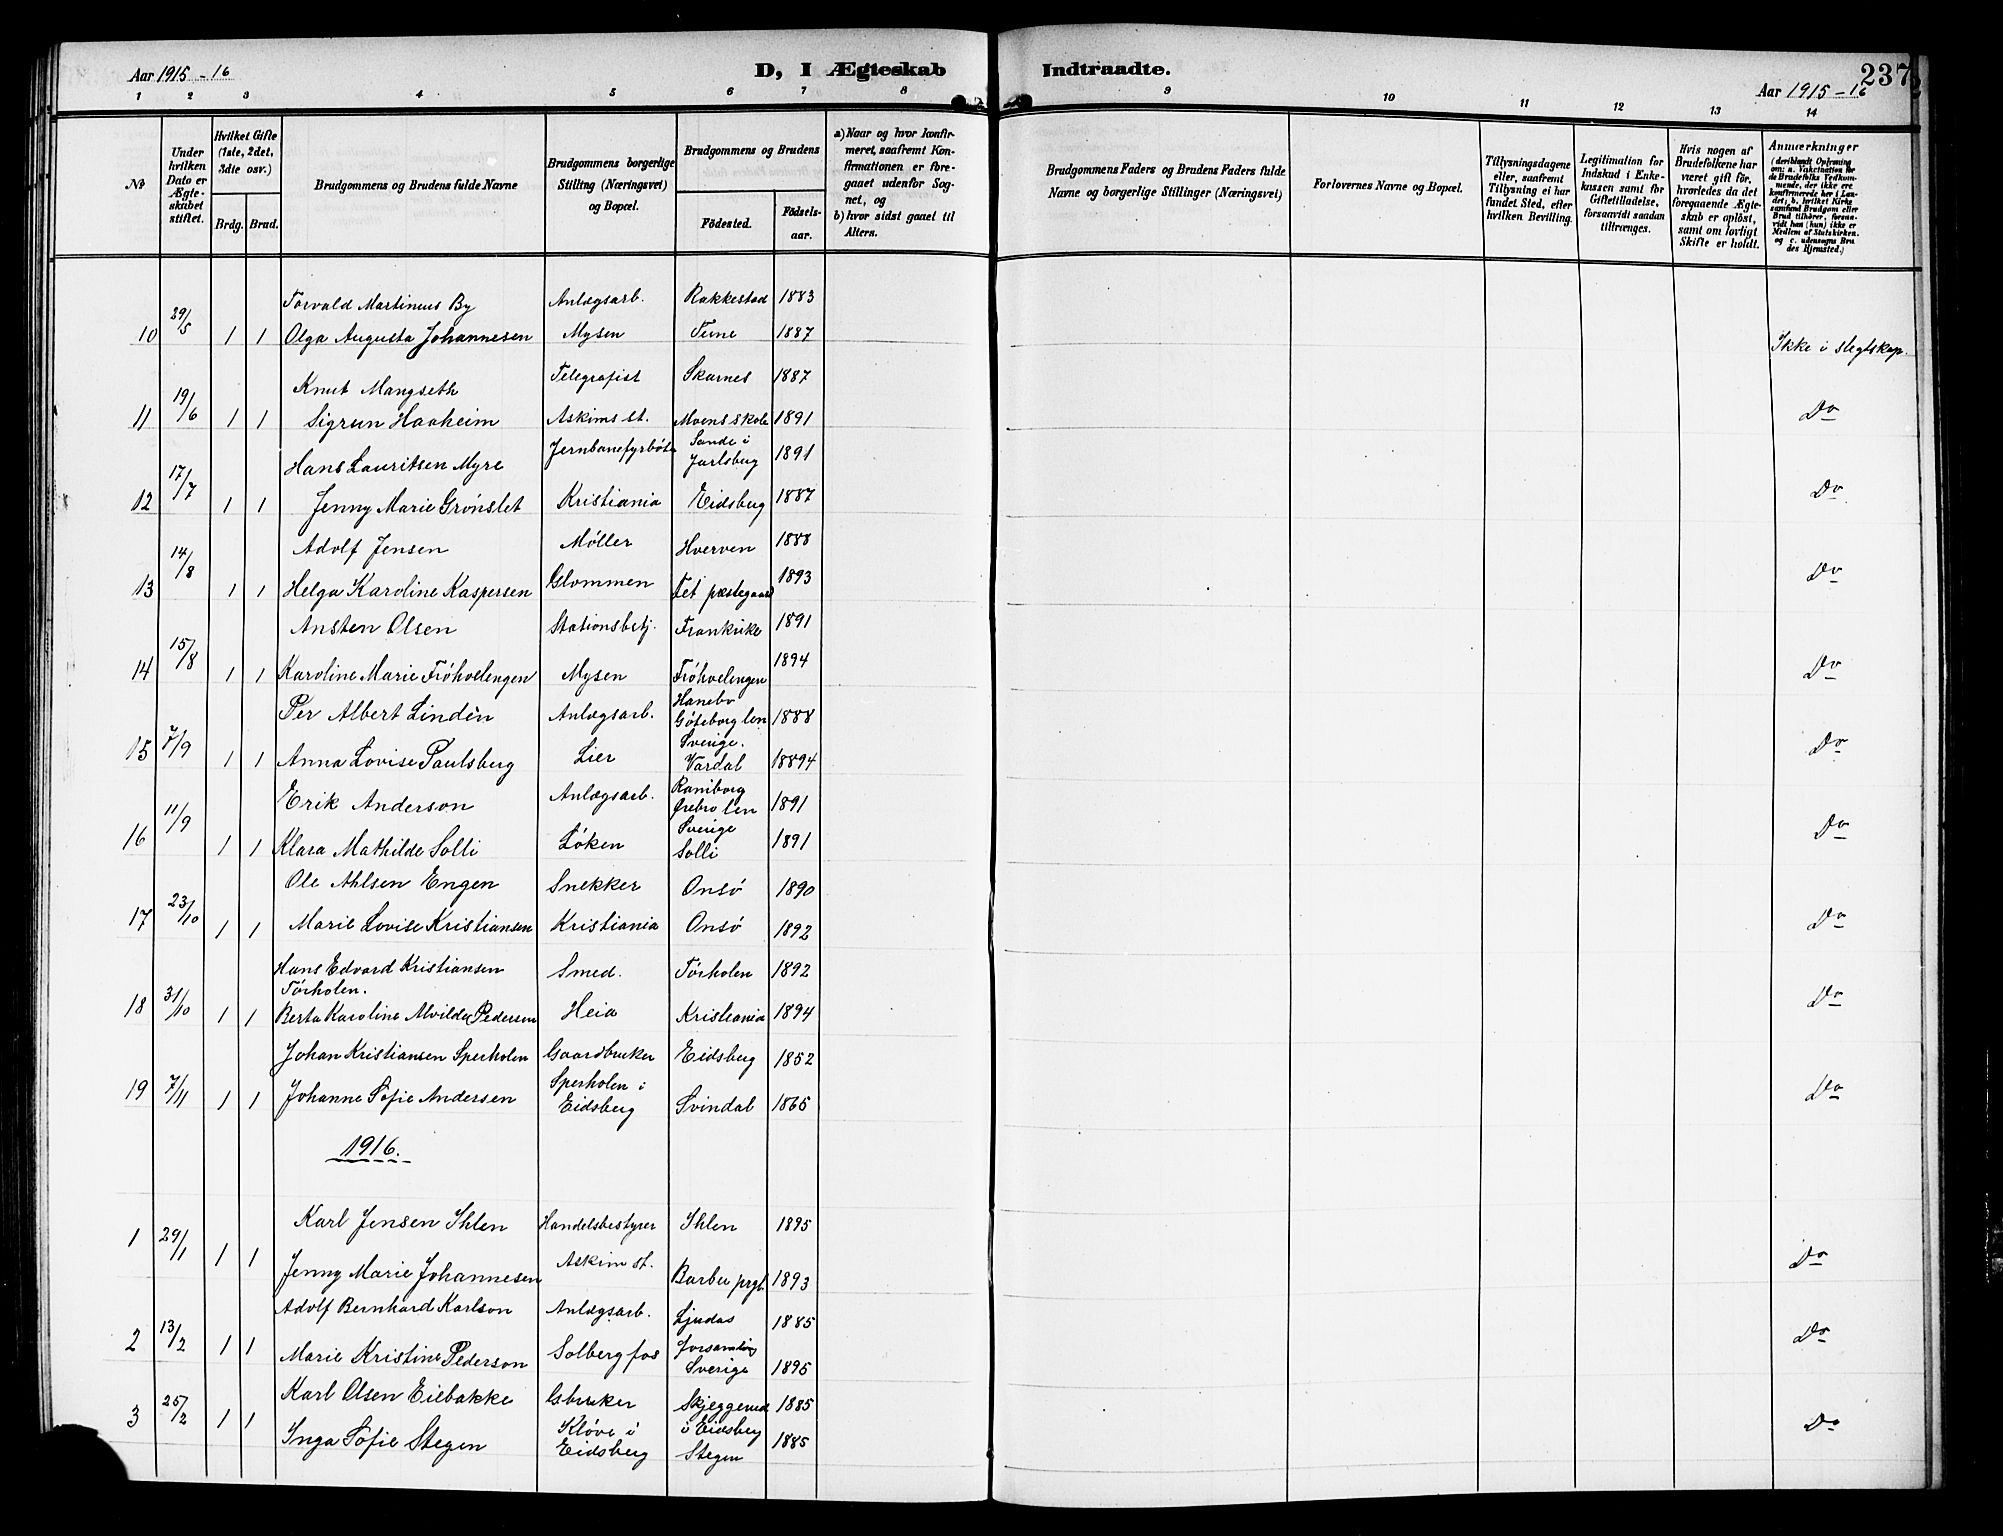 Aar 1915-16 D, I Ægteskab Indtraadte. 237
Aar 1915-16
1 2 3 4 5 6 7 8 9 10 11 12 13 14
No
Under hvilken Dato er Ægteskabet stiftet.
Hvilket Gifte (1ste, 2det, 3die osv.)
Brdg. Brud.
Brudgommens og Brudens fulde Navne
Brudgommens borgerlige Stilling (Næringsvei) og Bopæl.
Brudgommens og Brudens
Födested.
Födselsaar.
a) Naar og hvor konfirmeret, saafremt Konfirmationen er foregaaet udenför Sognet, og
b) hvor sidst gaaet til Alters.
Brudgommens Faders og Brudens Faders fulde Navne og borgerlige Stillinger (Næringsvei)
Forlovernes Navne og Bopæl.
Tillysningsdagene eller, saafremt Tillysning ei har fundet Sted, efter hvilken Bevilling.
Legitimation for Indskud i Enkekassen samt för Giftetilladelse, forsaavidt saadan tiltrænges.
Hvis nogen af Brudefolkene har været gift för, hvorledes da det foregaaende Ægteskab er oplöst, samt om lovligt Skifte er holdt.
Anmærkninger
(deriblandt Oplysning om: a. Vakcination for de Brudefolks Vedkommende, der ikke ere konfirmerede her i Landet; b. hvilket Kirkesamfund Brudgom eller Brud tilhörer, forsaavidt han (hun) ikke er Medlem af Statskirken, og c. udensogns Brudes Hjemsted.)
Torvald Martinius By Anlægsarb. Rakkestad 1883
10 29/5 1 1 Olga Augusta Johannesen Mysen Tune 1887 Ikke i slegtskap.
Knut Mangseth Telegrafist Skarnes 1887
11 19/6 1 1 Sigrun Haaheim Askims st. Moens skole 1891 Do
Hans Lauritsen Myre Jernbanefyrbøter Sande i Jarlsberg 1891
12 17/7 1 1 Jenny Marie Grønslet Kristiania Eidsberg 1887 Do
Adolf Jensen Møller Hverven 1888
13 14/8 1 1 Helga Karoline Kaspersen Glommen Fet præstegaard 1893 Do
Ansten Olsen Stationsbetj. Frankrike 1891
14 15/8 1 1 Karoline Marie Frøhvelengen Mysen Frøhvelengen 1894 Do
Per Albert Lindèn Anlægsarb. Hanebo Göteborg len Sverige. 1888
15 7/9 1 1 Anna Lovise Paulsberg Lier Vardal 18894 Do
Erik Anderson Anlægsarb. Ramborg Ørebro len Sverige 1891
16 11/9 1 1 Klara Mathilde Solli Løken Solli 1891 Do
Ole Ahlsen Engen Snekker Onsø 1890
17 23/10 1 1 Marie Lovise Kristiansen Kristiania Onsø 1892 Do
Hans Edvard Kristiansen Tørholen. Smed. Tørholen 1892
18 31/10 1 1 Berta Karoline Alvilde Pedersen Heia Kristiania 1894 Do
Johan Kristiansen Sperholen Gaardbruker Eidsberg 1852
19 7/11 1 1 Johanne Sofie Andersen Sperholen i Eidsberg Svindal 1865 Do
1916.
Karl Jensen Ihlen Handelsbestyrer Ihlen 1895
1 29/1 1 1 Jenny Marie Johannesen Askim st. Barbu prgl. 1893 Do
Adolf Bernhard Karlson Anlægsarb. Ljudas 1885
2 13/2 1 1 Marie Kristine Pederson Solbergfos forsamling Sverige 1895 Do
Karl Olsen Eiebakke Gbruker Skjeggerud i Eidsberg 1885
3 25/2 1 1 Inga Sofie Stegen Kløve i Eidsberg Stegen 1885 Do